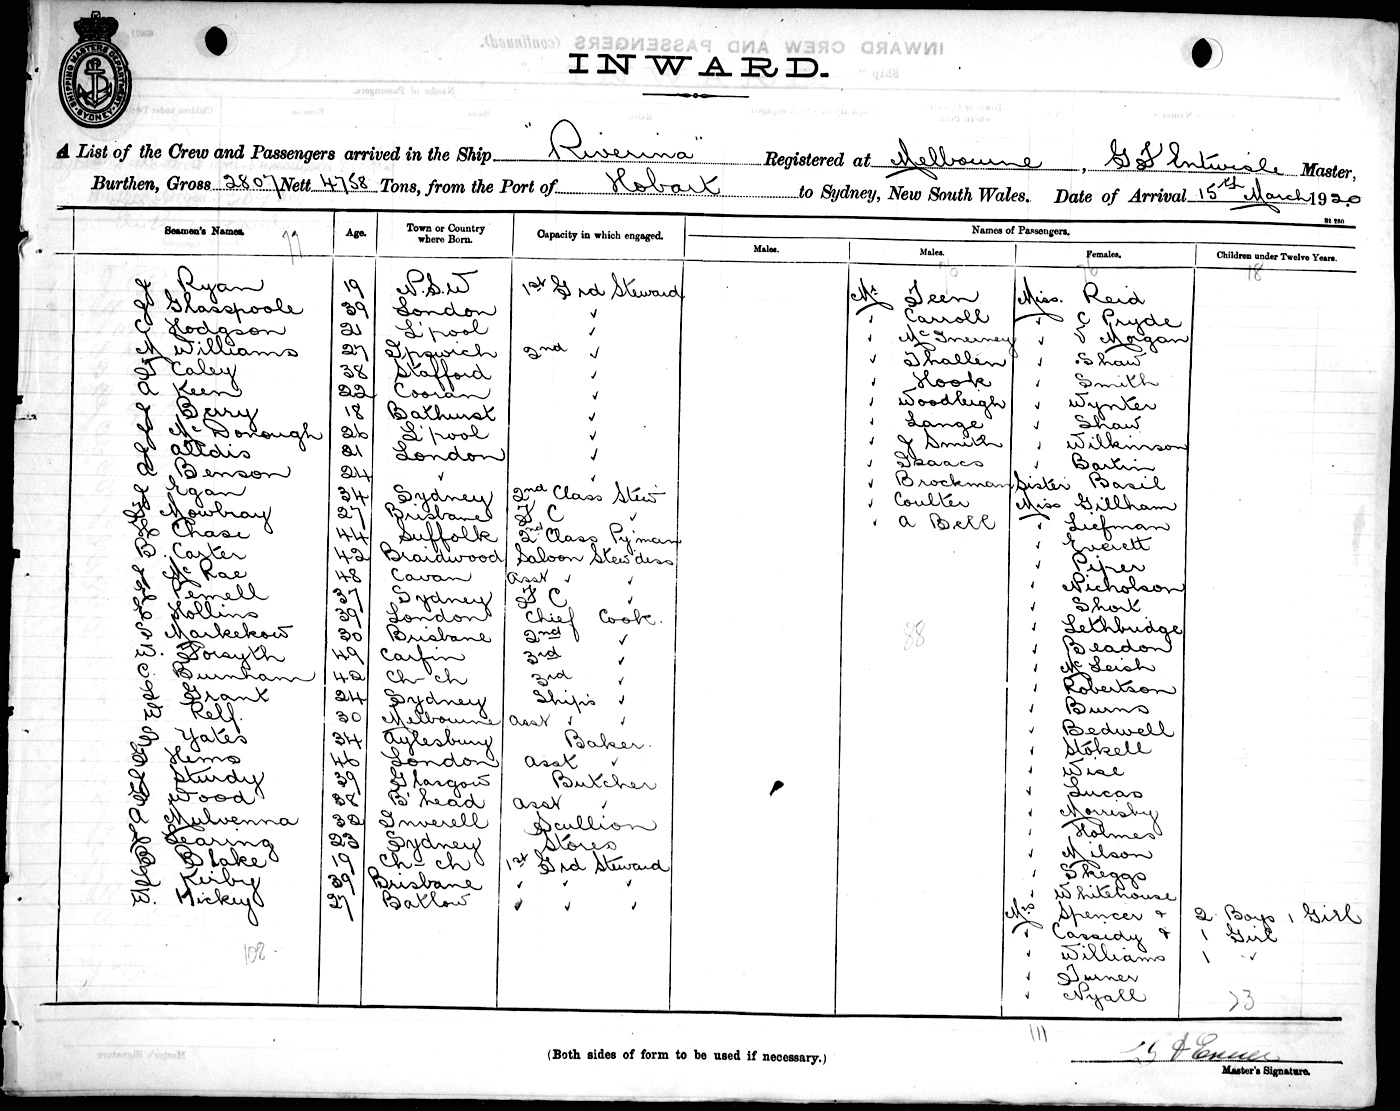 SHIPPING MASTERS DEPARTMENT SYDNEY
INWARD.
A List of the Crew and Passengers arrived in the Ship "Riverina" Registered at Melbourne, G F Entwisle Master,
Burthen, Gross 2807 Nett 4758 Tons, from the Port of Hobart to Sydney, New South Wales. Date of Arrival 15th March 1920
St 280
Seamen's Names. Age. Town or Country where Born. Capacity in which engaged. Names of Passengers.
Males. Males. Females. Children under Twelve Years.
77 76 76 18
Ryan 19 N.S.W 1st Grd Steward Mr Teen Miss. Reid
Glasspoole 39 London ✓ ✓ Carroll ✓ C Pryde
Hodgson 21 L'pool ✓ ✓ McInerney ✓ V Morgan
Williams 27 Ipswich 2nd ✓ ✓ Thallen ✓ Shaw
Caley 38 Stafford ✓ ✓ Hook ✓ Smith
Keen 22 Cooran ✓ ✓ Woodleigh ✓ Wynter
Berry 18 Bathurst ✓ ✓ Lange ✓ Shaw
McDonough 26 L'pool ✓ ✓ J Smith ✓ Wilkinson
Alldis 21 London ✓ ✓ Isaacs ✓ Bartin
Benson 24 ✓ ✓ ✓ Brockman Sister Basil
Egan 34 Sydney 2nd Class Stew ✓ Coulter Miss Gillham
Mowbray 27 Brisbane F C ✓ ✓ A Bell ✓ Liefman
Chase 44 Suffolk 2nd Class P'yman ✓ Everett
Carter 42 Braidwood Saloon Stew'dess ✓ Piper
McRae 48 Cavan Asst ✓ ✓ ✓ Nicholson
Jemell 37 Sydney F C ✓ ✓ Short
Hollins 39 London Chief Cook. ✓ Lethbridge
Markekow 30 Brisbane 2nd ✓ ✓ Beadon
88
Forsyth 49 Carfin 3rd ✓ ✓ McLeish
Burnham 42 Ch-ch 3rd ✓ ✓ Robertson
Grant 24 Sydney Ship's ✓ ✓ Burns
Relf. 30 Melbourne Asst ✓ ✓ ✓ Bedwell
Yates 34 Aylesbury Baker. ✓ Stokell
Hems 46 London Asst ✓ ✓ Wise
Sturdy 39 Glasgow Butcher ✓ Lucas
Wood 38 B'head Asst ✓ ✓ Morrisby
Mulvenna 32 Inverell Scullion ✓ Holmes
Fearing 23 Sydney Stores ✓ Nilson
Blake 19 Ch-ch 1st Grd Steward ✓ Skeggs
Kirby 39 Brisbane ✓ ✓ ✓ ✓ Whitehouse
Hickey 27 Batlow ✓ ✓ ✓ Mrs Spencer + 2 Boys 1 Girl
✓ Cassidy + 1 Girl
108 ✓ Williams 1 ✓
✓ Turner
✓ Nyall 23
111
(Both sides of form to be used if necessary.)
Master's Signature.